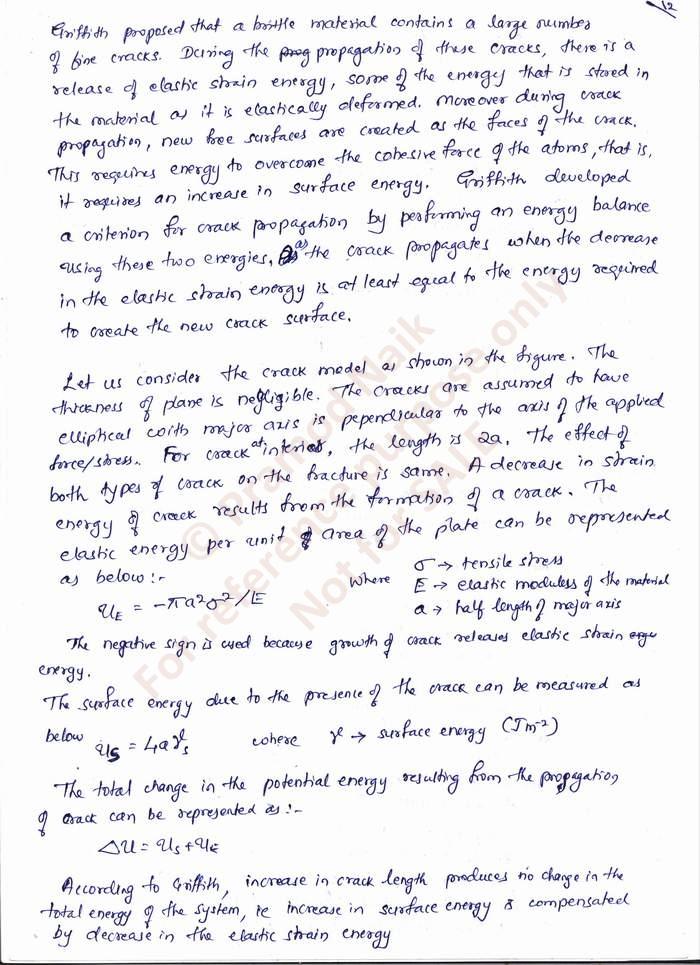 12
Griffith proposed that a brittle material contains a large number
of fine cracks. During the prog propagation of these cracks, there is a
release of elastic strain energy, some of the energy that is stored in
the material as it is elastically deformed. Moreover during crack
propagation, new free surfaces are created as the faces of the crack.
This requires energy to overcome the cohesive force of the atoms, that is,
it requires an increase in surface energy. Griffith developed
a criterion for crack propagation by performing an energy balance
using these two energies, as the crack propagates when the decrease
in the elastic strain energy is at least equal to the energy required
to create the new crack surface.
Let us consider the crack model as shown in the figure. The
thickness of plane is negligible. The cracks are assumed to have
elliptical with major axis is pependicular to the axis of the applied
force/stress. For crack at interior, the length is 2a. The effect of
both types of crack on the fracture is same. A decrease in strain
energy of crack results from the formation of a crack. The
elastic energy per unit area of the plate can be represented
as below:- where σ → tensile stress
U_E = -πa²σ²/E E → elastic moduless of the material
a → half length of major axis
The negative sign is used because growth of crack releases elastic strain
energy.
The surface energy due to the presence of the crack can be measured as
below U_S = 4aγ_s where γ → surface energy (Jm⁻²)
The total change in the potential energy resulting from the propagation
of crack can be represented as:-
ΔU = U_S + U_E
According to Griffith, increase in crack length produces no change in the
total energy of the system, ie increase in surface energy is compensated
by decrease in the elastic strain energy
© Pramod Naik
For reference purpose only
Not for SALE